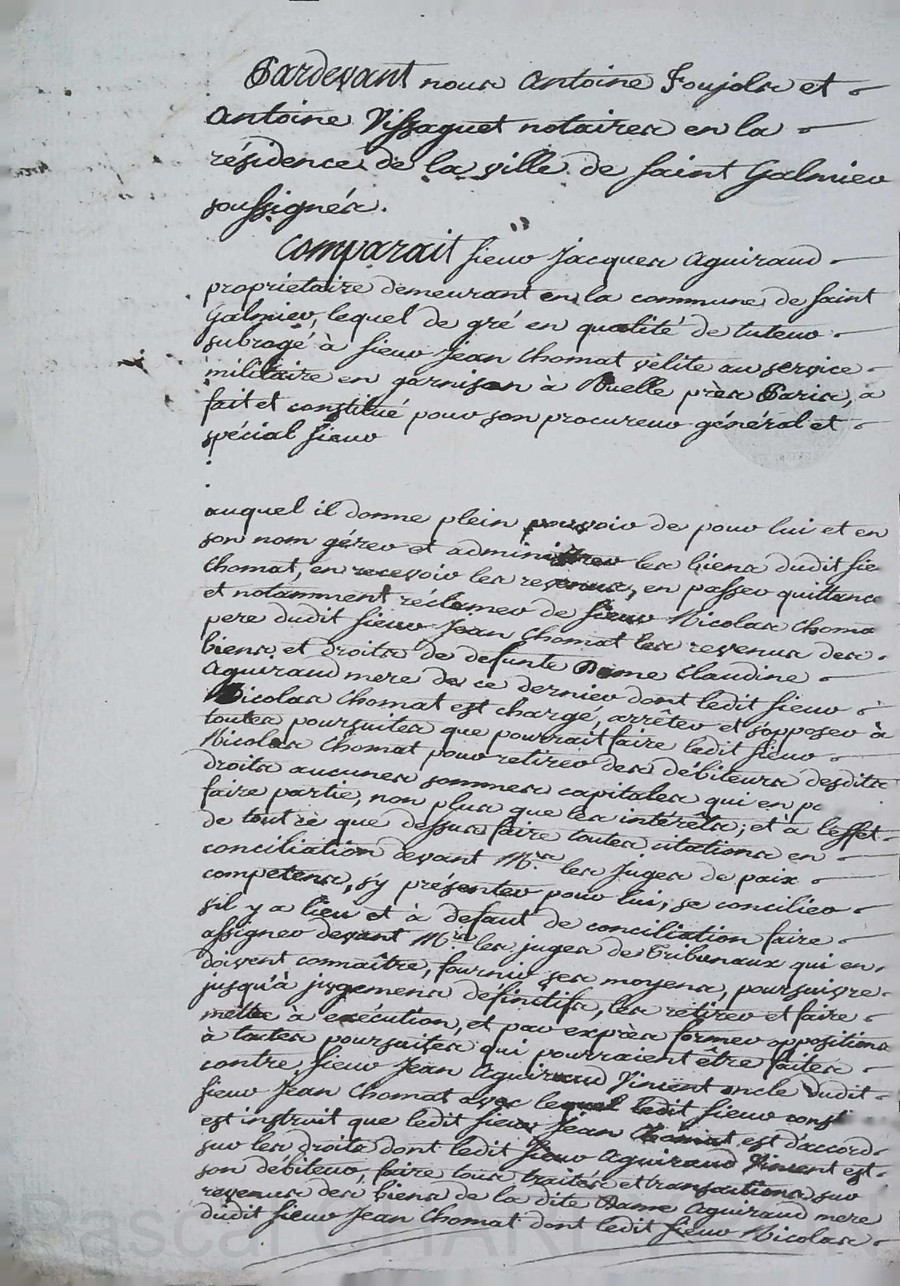 Pardevant nous Antoine Foujols et
Antoine Vissaguet notaires en la
résidence de la ville de Saint Galmier
soussignés.
Comparait sieur Jacques Aguiraud
propriétaire demeurant en la commune de Saint
Galmier, lequel de gré en qualité de tuteur
subrogé à sieur Jean Chomat vélite au service
militaire en garnison à Ruelle près Paris, a
fait et constitué pour son procureur général et
spécial sieur
auquel il donne plein pouvoir de pour lui et en
son nom gérer et administrer les biens dudit sie
Chomat, en recevoir les revenus, en passer quittance
et notamment réclamer de sieur Nicolas Choma
pere dudit sieur Jean Chomat les revenus des
biens et droits de defunte Dame Claudine
Aguiraud mere de ce dernier dont ledit sieur
Nicolas Chomat est chargé, arrêter et s'opposer à
toutes poursuites que pourrait faire ledit sieur
Nicolas Chomat pour retirer des débiteurs desdits
droits aucunes sommes capitales qui en
faire partie, non plus que les intérêts; et à l'effet
de tout ce que dessus faire toutes citations en
conciliation devant Mrs. les Juges de paix
competens, s'y présenter pour lui, se concilier
s'il y a lieu et à defaut de conciliation faire
assigner devant Mrs. les juges des Tribunaux qui en
doivent connaître, fournir ses moyens, poursuivre
jusqu'à jugemens définitifs, les retirer et faire
mettre à exécution, et par exprès former oppositions
à toutes poursuites qui pourraient être faites
contre, sieur Jean Aguiraud Vincent oncle dudit
sieur Jean Chomat avec lequel ledit sieur const
est instruit que ledit sieur Jean Chomat est d'accord
sur les droits dont ledit sieur Aguiraud Vincent est
son débiteur, faire tous traités et transactions sur
revenus des biens de la dite Dame Aguiraud mere
dudit sieur Jean Chomat dont ledit sieur Nicolas